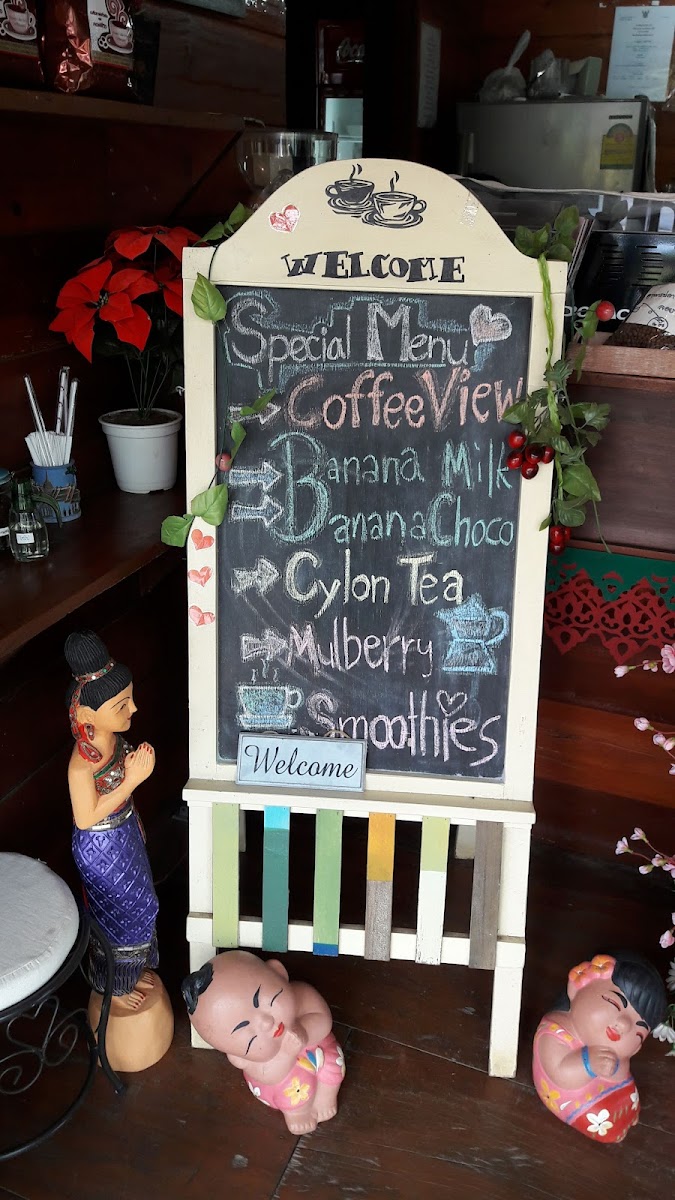 WELCOME
Special Menu
Coffee View
Banana Milk
Banana Choco
Cylon Tea
Mulberry
Smoothies
Welcome